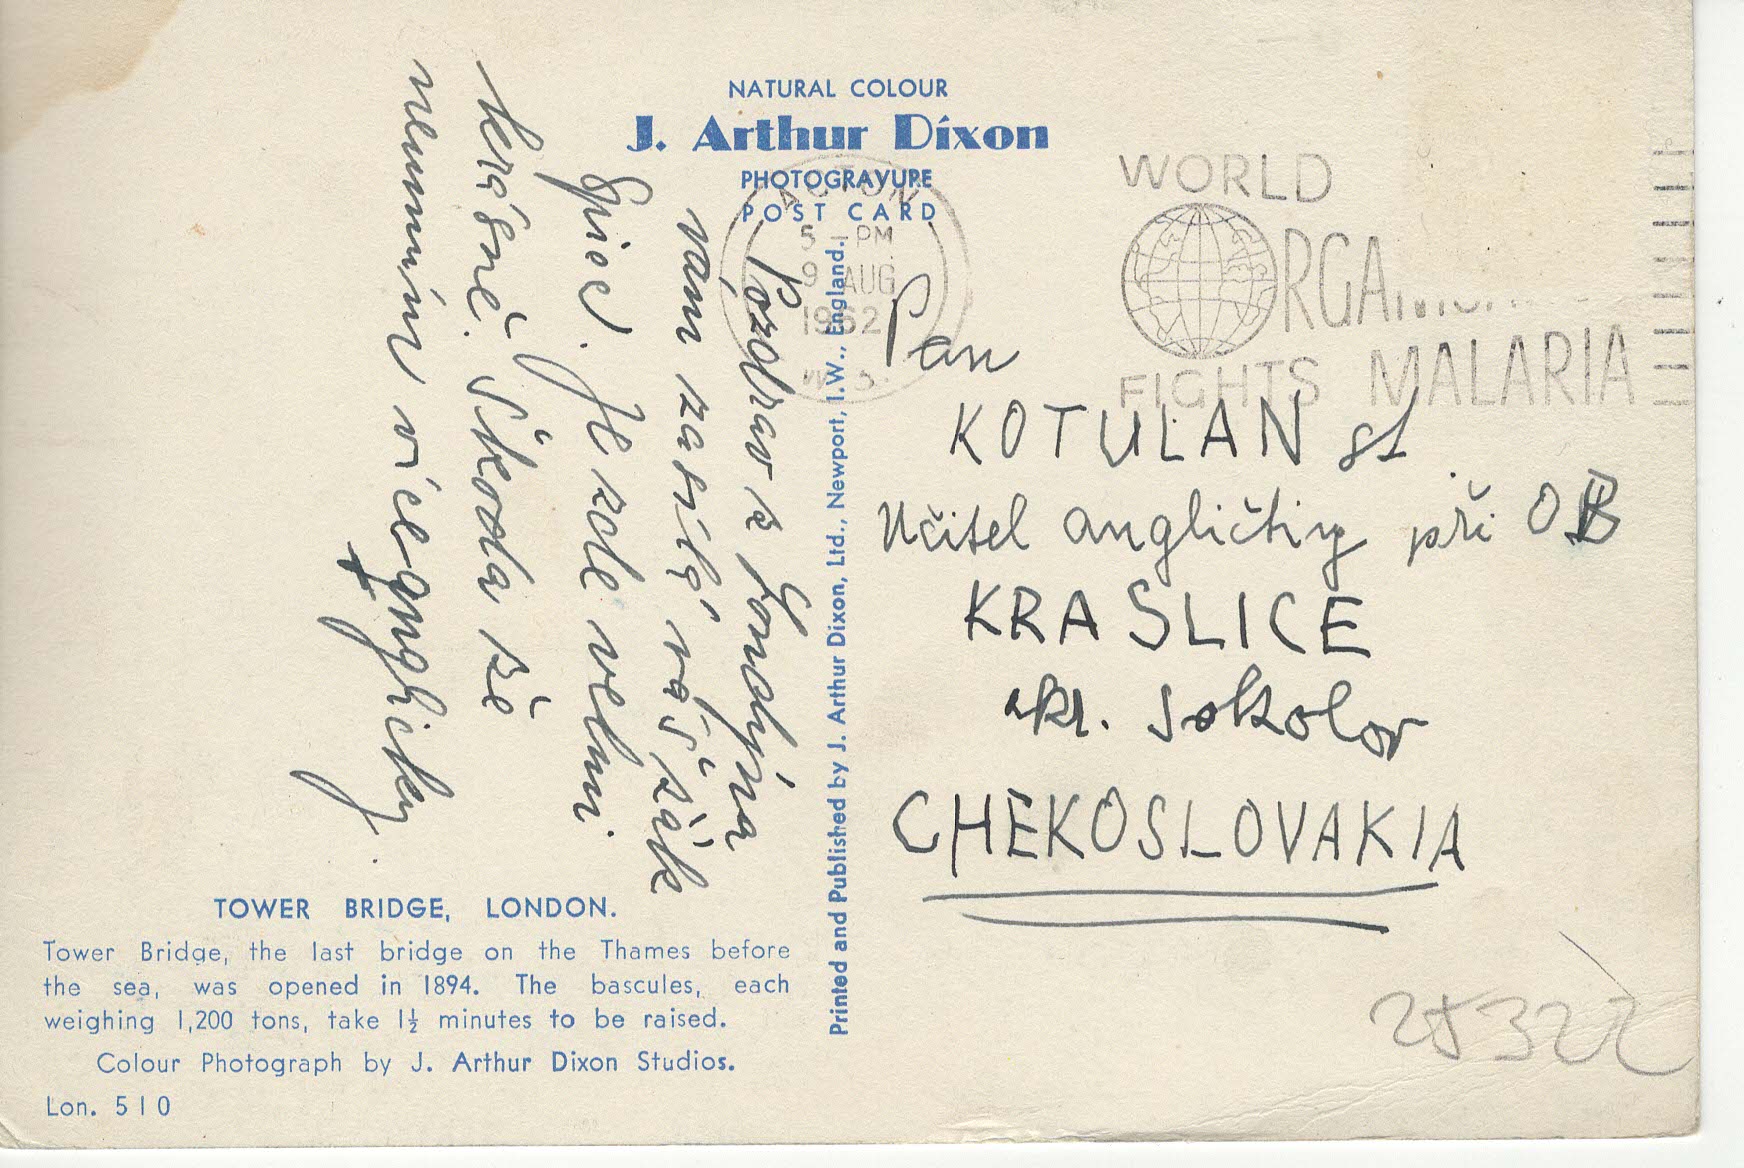 NATURAL COLOUR
J. Arthur Dixon
PHOTOGRAVURE
POST CARD
ACTON
5 - PM
9 AUG
1962
W.3.
WORLD
FIGHTS MALARIA
Pozdrav z Londýna
vám zasílá váš žák
Špic. Je zde velmi
krásně. Škoda že
neumím víc anglicky.
Printed and Published by J. Arthur Dixon, Ltd., Newport, I.W., England.
Pan
KOTULAN st
Učitel angličtiny při OB
KRASLICE
okr. Sokolov
CHEKOSLOVAKIA
TOWER BRIDGE, LONDON.
Tower Bridge, the last bridge on the Thames before
the sea, was opened in 1894. The bascules, each
weighing 1,200 tons, take 1½ minutes to be raised.
Colour Photograph by J. Arthur Dixon Studios.
Lon. 510